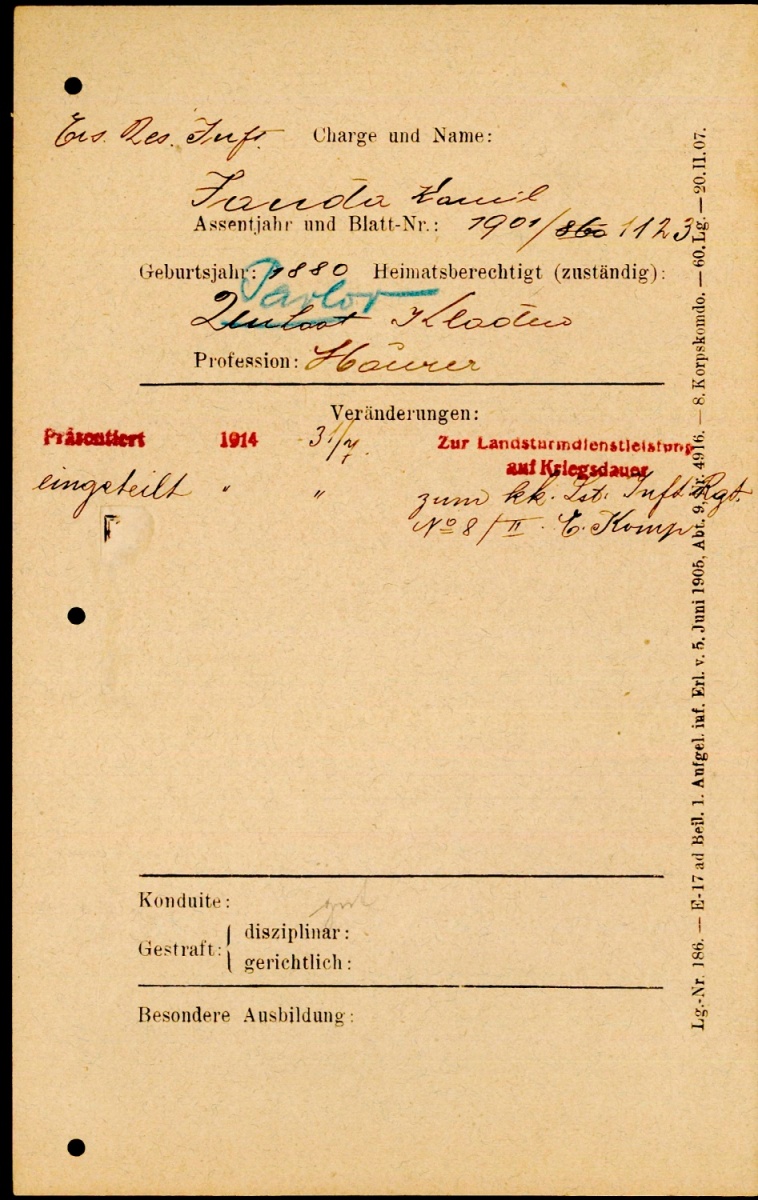 Ers. Res. Inft. Charge und Name:
Janda Kamil
Assentjahr und Blatt-Nr.: 1901/860 1123
Geburtsjahr: 1880 Heimatsberechtigt (zuständig):
Kladno
Profession: Häurer
Veränderungen:
Präsentiert 1914 31/7. Zur Landsturmdienstleistung
auf Kriegsdauer
eingeteilt " " zum kk. Lst. Inft. Rgt.
No 8/II. E. Komp
Konduite: gut
Gestraft: disziplinär:
gerichtlich:
Besondere Ausbildung:
Lg.-Nr. 186. — E-17 ad Beil. 1. Aufgel. inf. Erl. v. 5. Juni 1905, Abt. 9, Nr. 4916. — 8. Korpskomdo. — 60. Lg. — 20. II. 07.